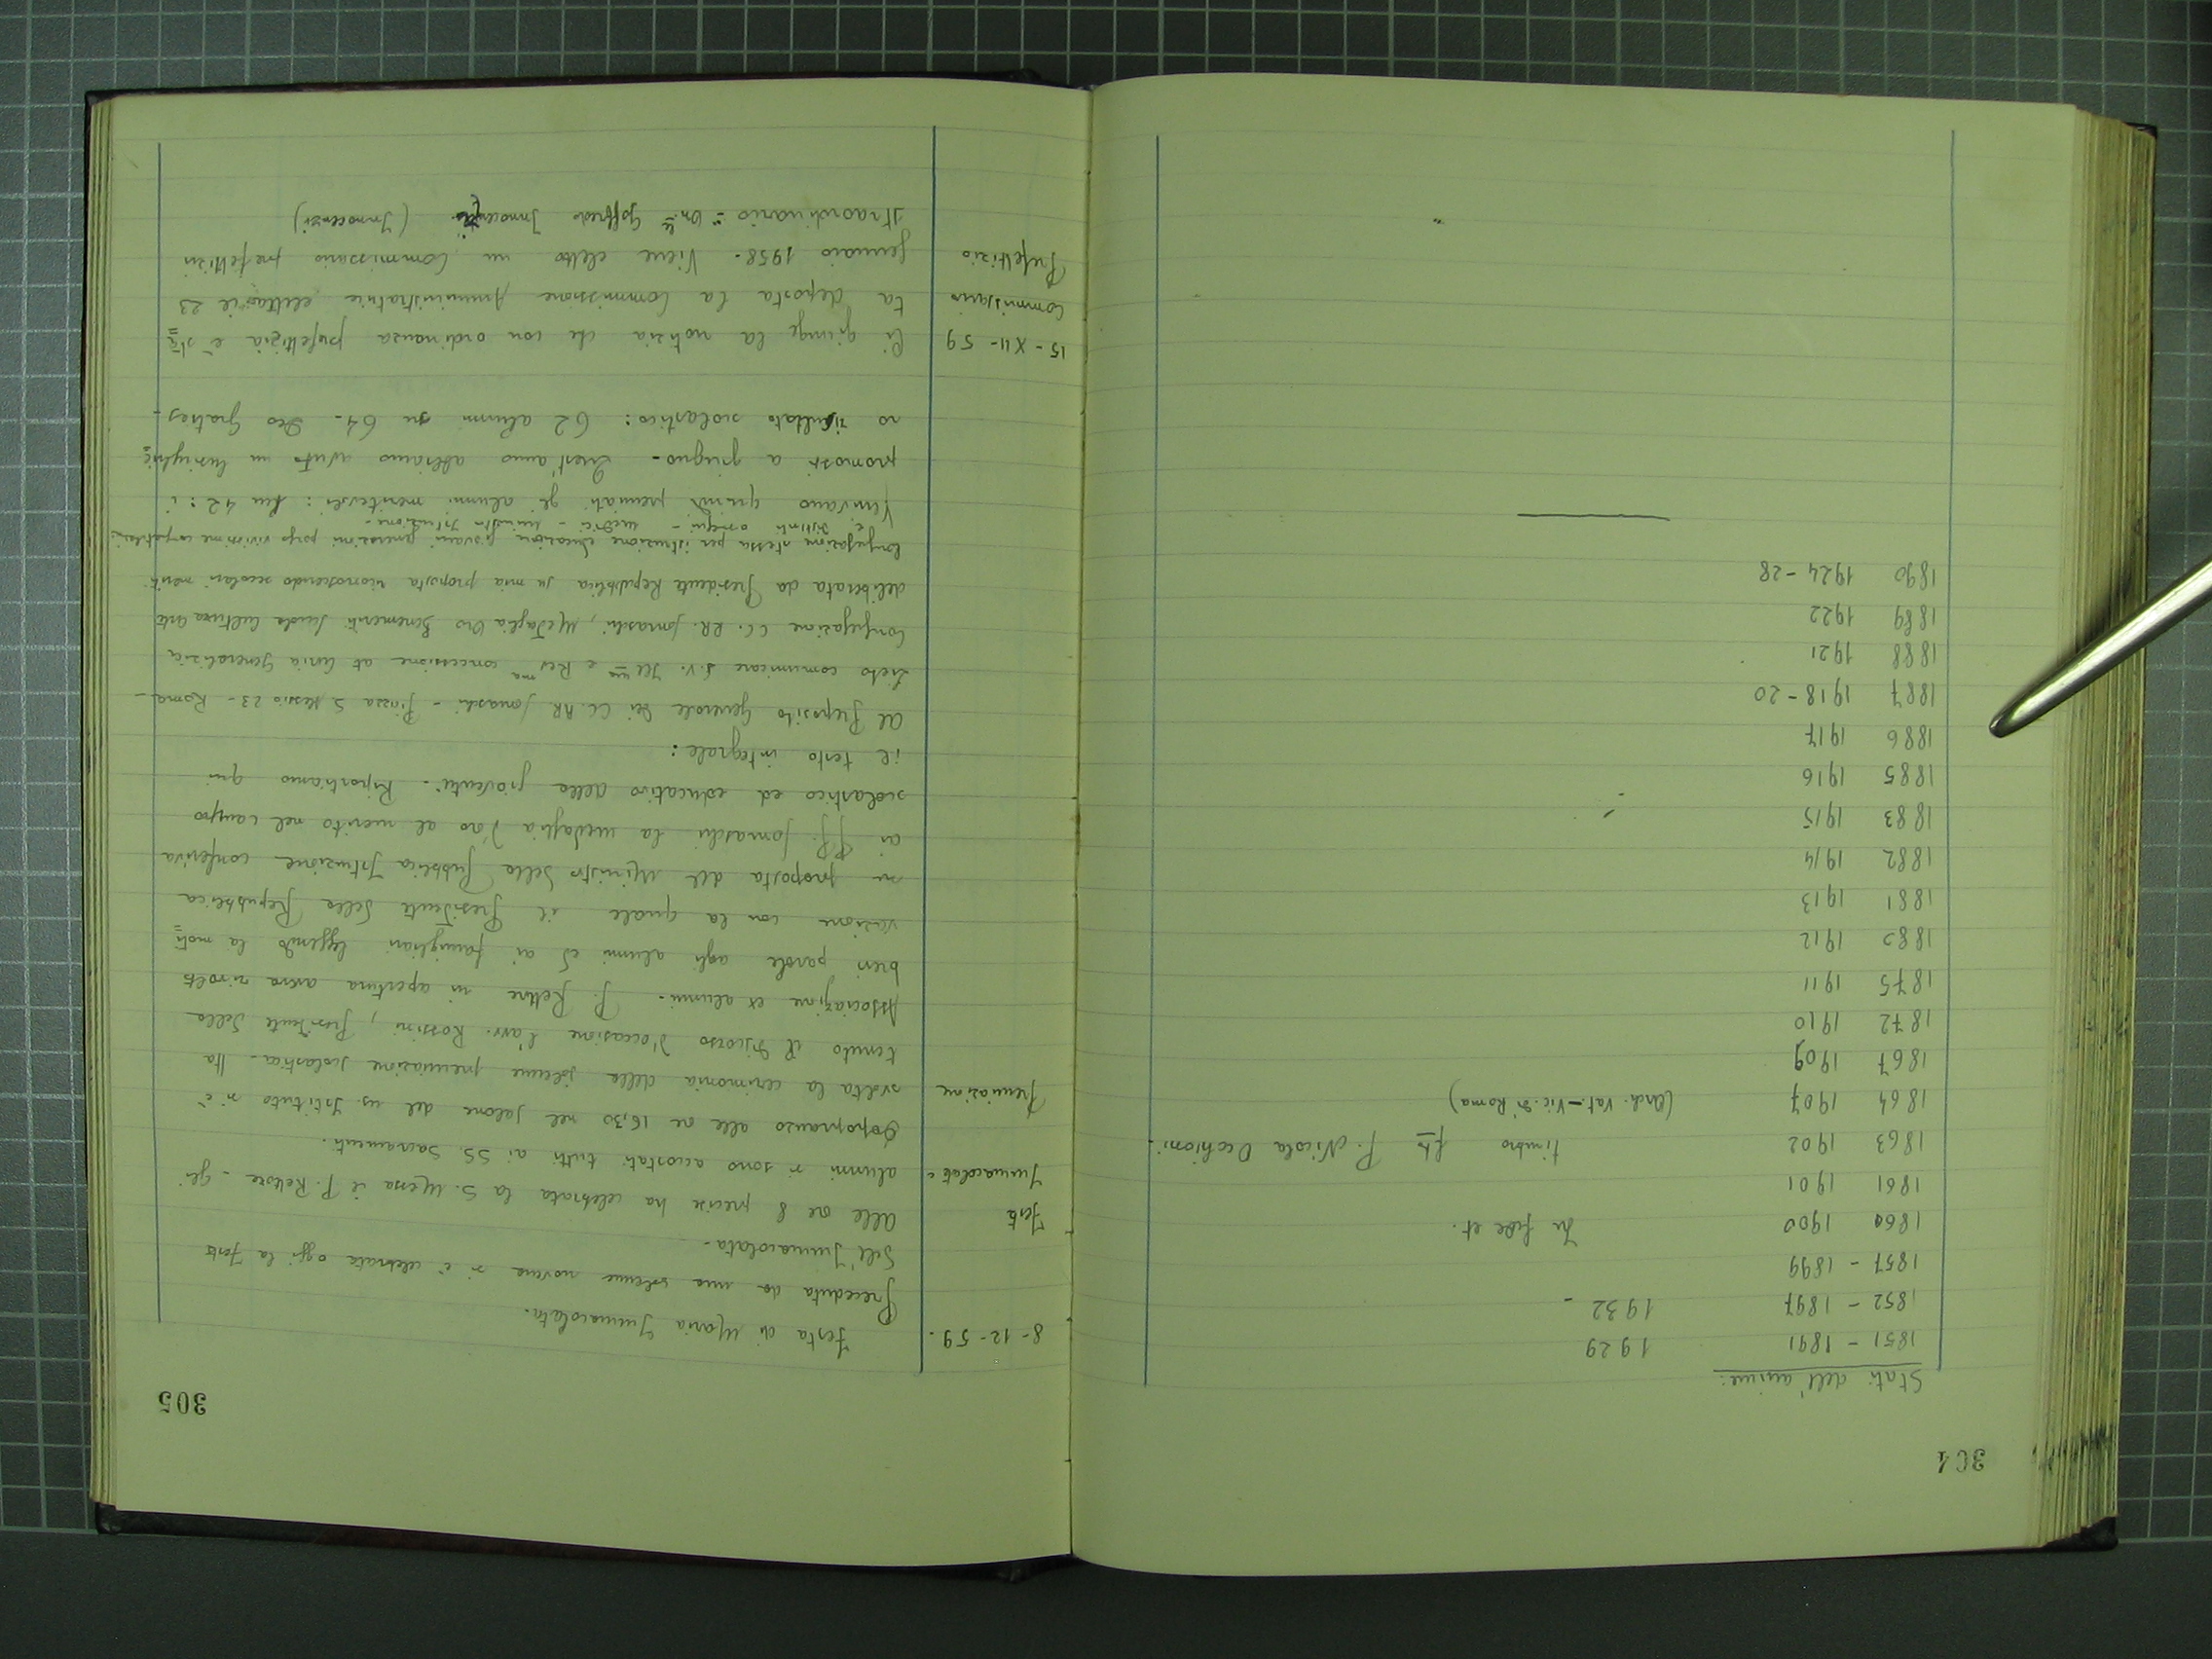 304
Stati dell'anime:
1851 - 1891 1929
1852 - 1897 1932 -
1857 - 1899
1860 1900 In fede et.
1861 1901
1863 1902 timbro P. Nicola Occhioni.
1864 1907 (Arch. Vat. - Vic. di Roma)
1867 1909
1872 1910
1875 1911
1880 1912
1881 1913
1882 1914
1883 1915
1885 1916
1886 1917
1887 1918-20
1888 1921
1889 1922
1890 1924-28
305
8-12-59. Festa di Maria Immacolata.
Preceduta da una solenne novena si è celebrata oggi la festa
dell'Immacolata.
Festa Alle ore 8 precise ha celebrata la S. Messa il P. Rettore. Gli
Immacolata alunni si sono accostati tutti ai SS. Sacramenti.
Dopopranzo alle ore 16,30 nel salone del ns. Istituto si è
Premiazione svolta la cerimonia della solenne premiazione scolastica. Ha
tenuto il discorso d'occasione l'avv. Rossini, Presidente della
Associazione ex alunni. P. Rettore in apertura aveva rivolto
brevi parole agli alunni ed ai famigliari leggendo la moti
vazione con la quale il Presidente della Repubblica
su proposta del Ministro della Pubblica Istruzione conferiva
ai PP. Somaschi la medaglia d'oro al merito nel campo
scolastico ed educativo della gioventù. Riportiamo qui
il testo integrale:
Al Preposito Generale dei CC. RR. Somaschi - Piazza S. Alessio 23 - Roma -
Lieto comunicare S.V. Ill ma e Rev ma concessione at Curia Generalizia
Congregazione CC. RR. Somaschi, Medaglia Oro Benemeriti Scuola Cultura Arte
deliberata da Presidente Repubblica su mia proposta riconoscendo secolari meriti
Congregazione stessa per istruzione educazione giovani generazioni porgo vivissime
distinti ossequi - Medici - Ministro Istruzione -
Venivano quindi premiati gli alunni meritevoli: ben 42: i
promossi a giugno. Quest'anno abbiamo avuto un lusinghie
ro risultato scolastico: 62 alunni su 64. Deo Gratias -
15-XII-59 Ci giunge la notizia che con ordinanza prefettizia è sta
Commissario ta deposta la Commissione Amministratrice eletta il 23
Prefettizio gennaio 1958. Viene eletto un Commissario prefettizio
straordinario: Goffredo (Innocenzi)